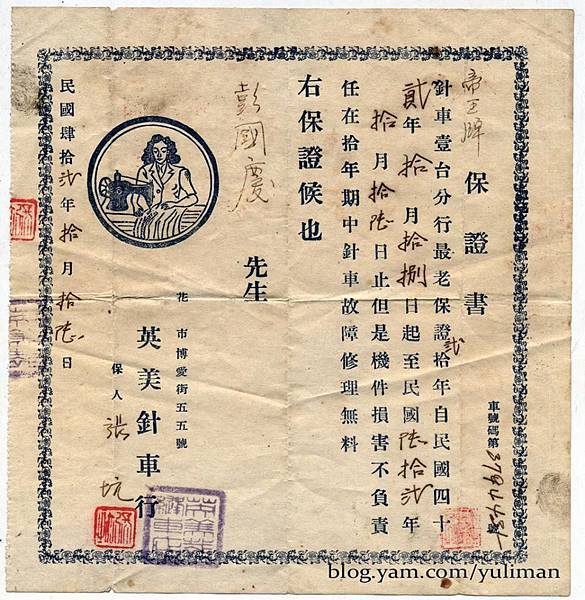 帝王牌 保證書
車號碼第
針車壹台分行最老保證貳拾年自民國四十
貳年拾月拾捌日起至民國陸拾貳年
拾月拾陸日止但是機件損害不負責
任在拾年期中針車故障修理無料
右保證候也
彭國慶 先生
花 市博愛街五五號
英美針車行
保人 張坑
民國肆拾貳年拾月拾陸日
blog.yam.com/yuliman